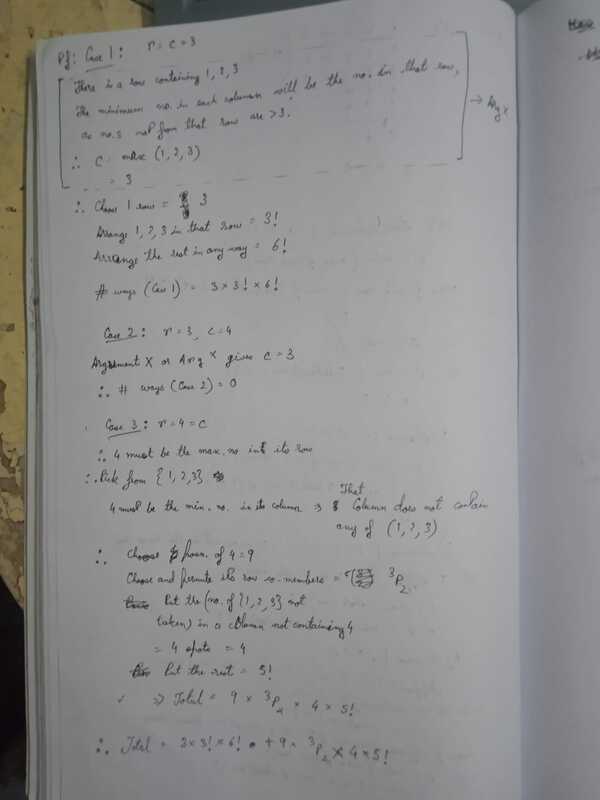 Pf: Case 1: r = c = 3
There is a row containing 1, 2, 3
The minimum no. in each column will be the no. in that row,
as no.s not from that row are > 3.
→ Arg x
∴ C = max (1, 2, 3)
= 3
∴ Choose 1 row = 3
Arrange 1, 2, 3 in that row = 3!
Arrange the rest in any way = 6!
# ways (Case 1) = 3 × 3! × 6!
Case 2: r = 3, c = 4
Argument X or Arg x gives c = 3
∴ # ways (Case 2) = 0
Case 3: r = 4 = c
∴ 4 must be the max. no in its row
∴ Pick from {1, 2, 3}
4 must be the min. no. in its column ⇒ That Column does not contain
any of (1, 2, 3)
∴ Choose posn. of 4 = 9
Choose and permute its row co-members = ³P₂
Put the (no. of {1, 2, 3} not
taken) in a column not containing 4
= 4 spots = 4
Put the rest = 5!
⇒ Total = 9 × ³P₂ × 4 × 5!
∴ Total = 3 × 3! × 6! + 9 × ³P₂ × 4 × 5!